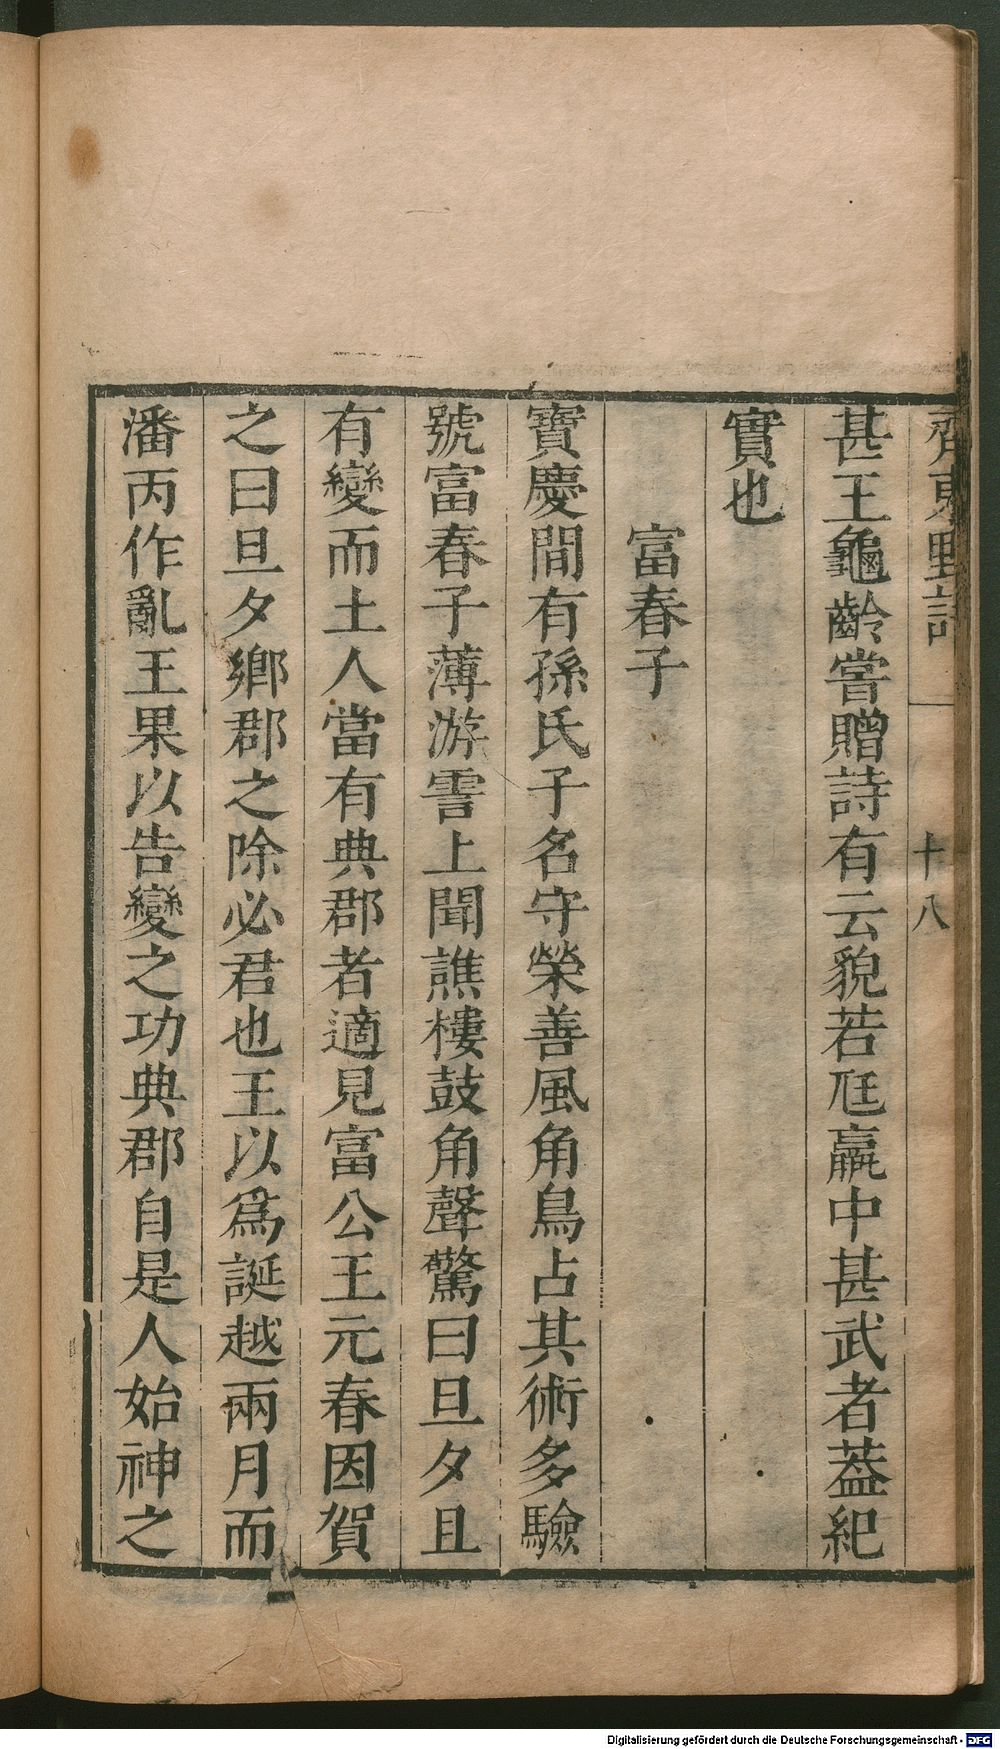 齊東野語
十八
甚王龜齡嘗贈詩有云貌若尫羸中甚武者葢紀
實也
富春子
寶慶間有孫氏子名守榮善風角鳥占其術多驗
號富春子薄游霅上聞譙樓鼓角聲驚曰旦夕且
有變而土人當有典郡者適見富公王元春因賀
之曰旦夕鄉郡之除必君也王以爲誕越兩月而
潘丙作亂王果以告變之功典郡自是人始神之
Digitalisierung gefördert durch die Deutsche Forschungsgemeinschaft - DFG